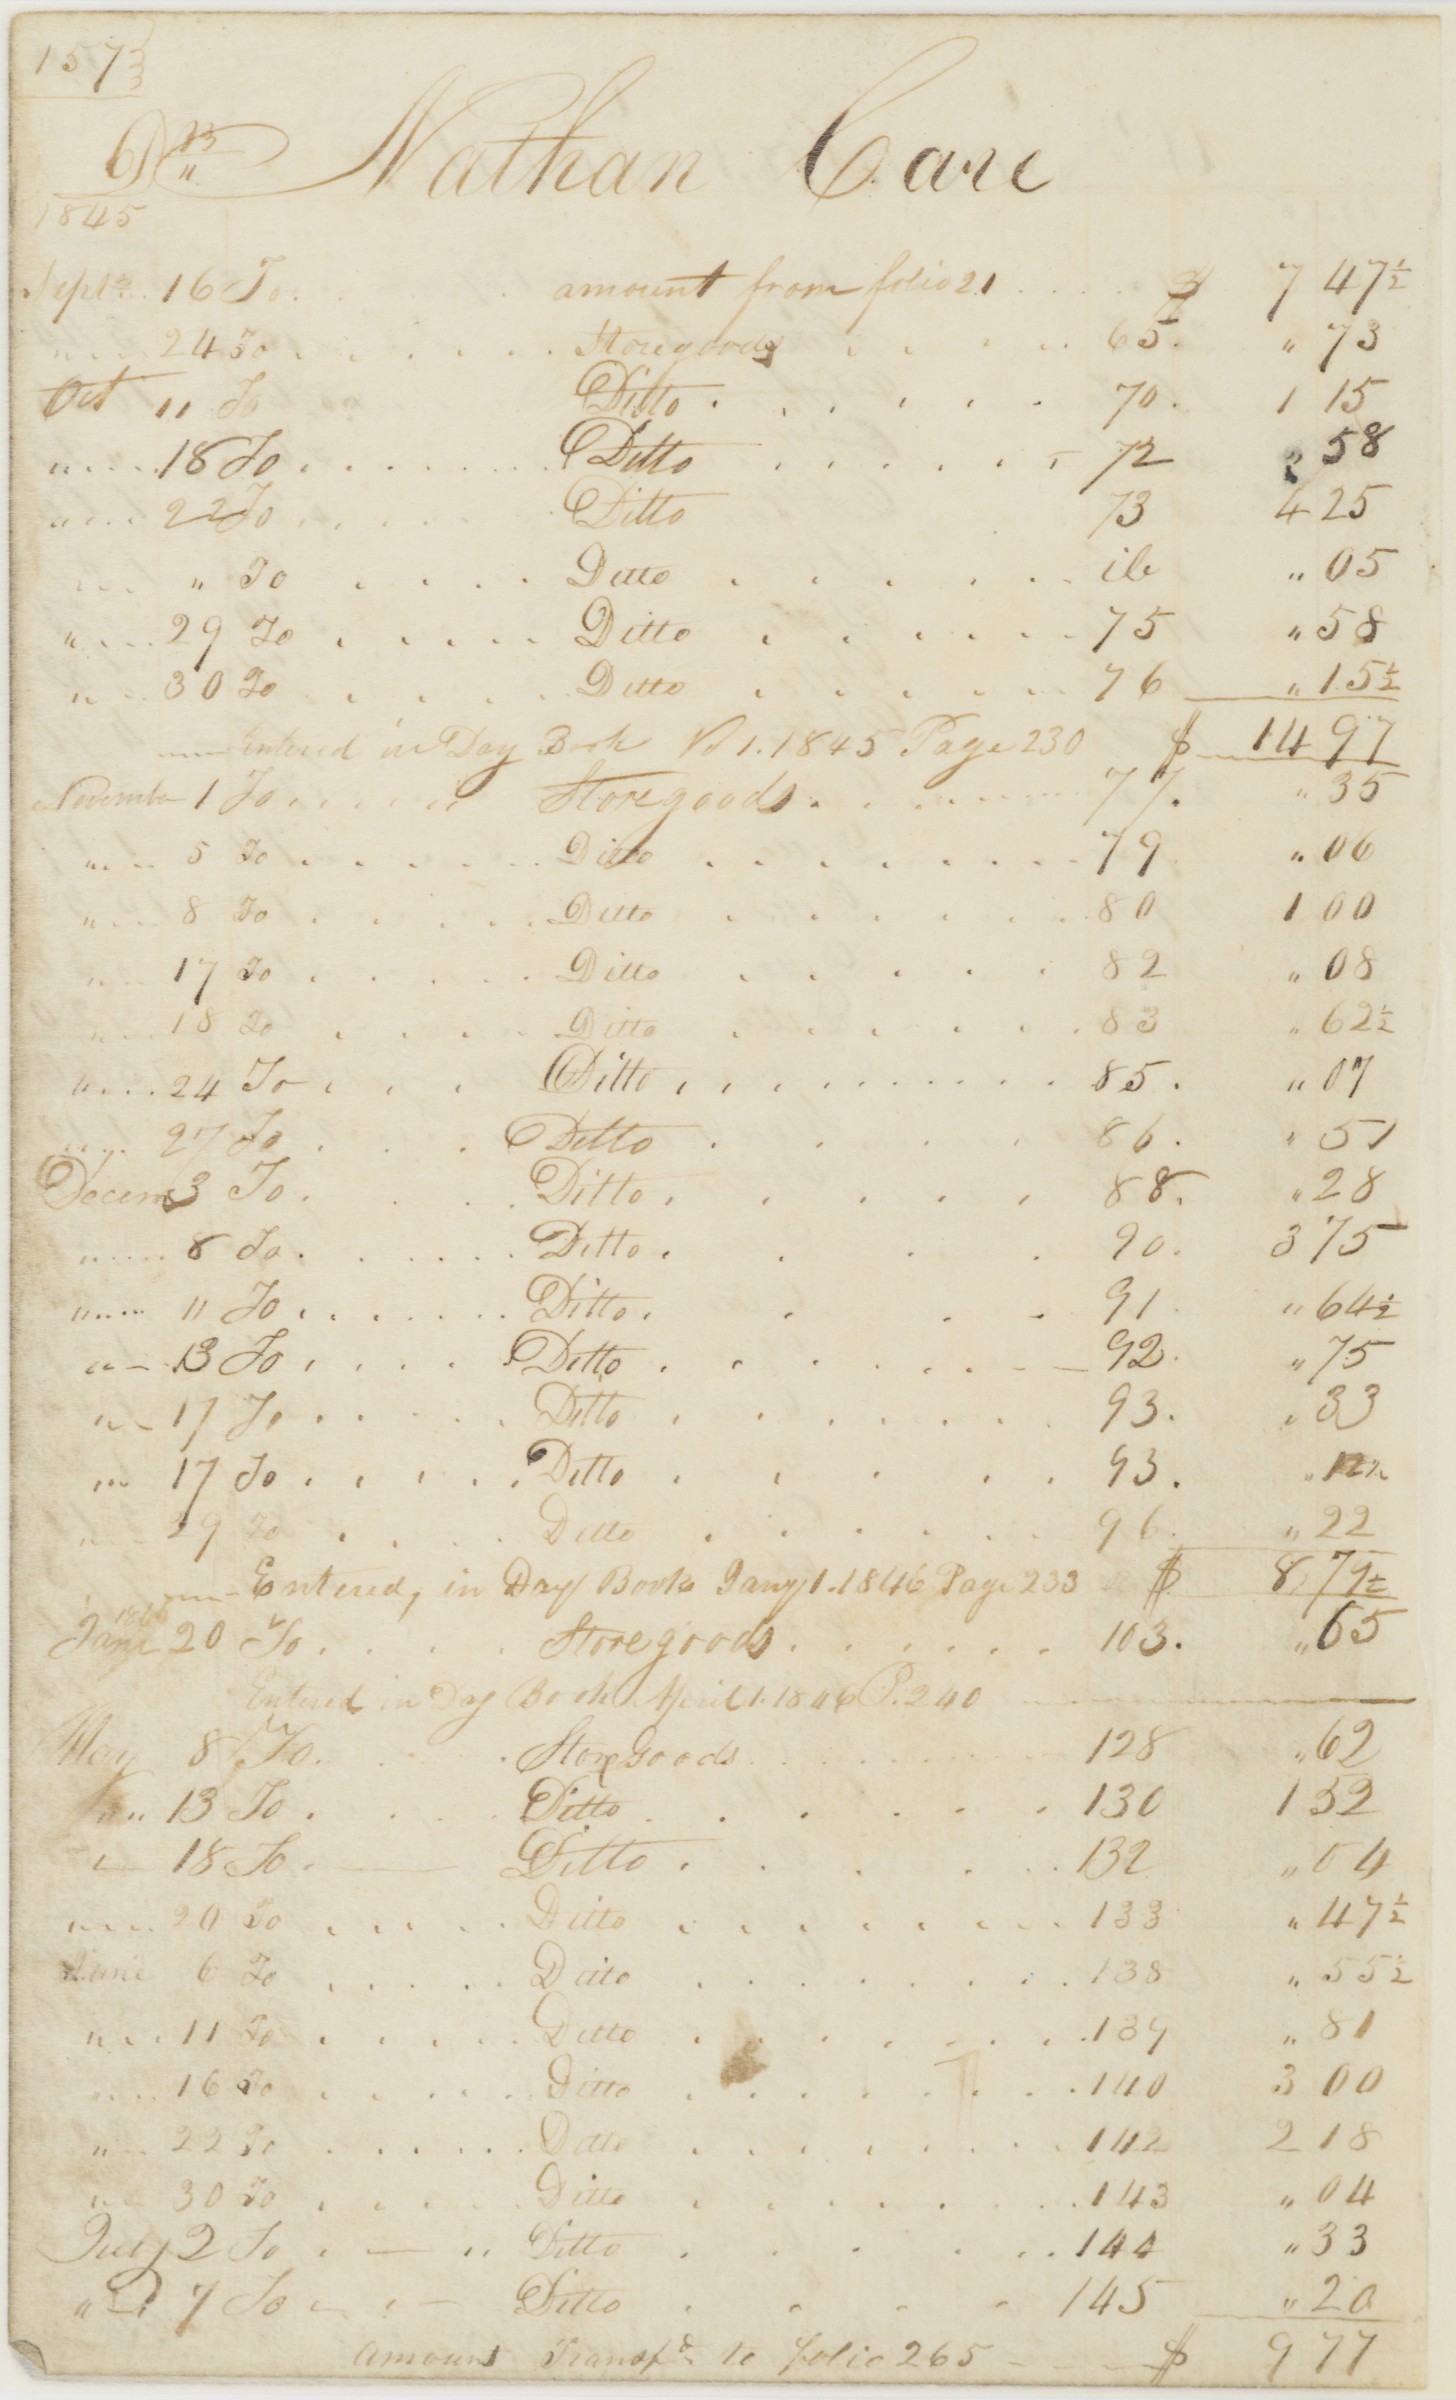 157
Dr Nathan Care
1845
Septr 16 To amount from folio 21 $ 7 47½
" 24 To Storegoods 65. " 73
Oct 11 To Ditto 70. 1 15
" 18 To Ditto 72 " 58
" 22 To Ditto 73 4 25
" " To Ditto ib " 05
" 29 To Ditto 75 " 58
" 30 To Ditto 76 " 15½
Entered in Day Book 1.1845 Page 230 $ 14 97
November 1 To Storegoods 77. " 35
" 5 To Ditto 79 " 06
" 8 To Ditto 80 1 00
" 17 To Ditto 82 " 08
" 18 To Ditto 83 " 62½
" 24 To Ditto 85. " 07
" 27 To Ditto 86. " 51
Decem 3 To Ditto 88. " 28
" 8 To Ditto 90. 3 75
" 11 To Ditto 91 " 64½
" 13 To Ditto 92. " 75
" 17 To Ditto 93. " 33
" 17 To Ditto 93. " 12½
" 29 To Ditto 96. " 22
Entered, in Day Book Jany 1.1846 Page 233 $ 8 79½
1846
Jany 20 To Storegoods 103. " 65
Entered in Day Book April 1.1846 P. 240
May 8 To Store Goods 128 " 62
" 13 To Ditto 130 1 52
" 18 To Ditto 132 " 04
" 20 To Ditto 133 " 47½
June 6 To Ditto 138 " 55½
" 11 To Ditto 139 " 81
" 16 To Ditto 140 3 00
" 22 To Ditto 142 2 18
" 30 To Ditto 143 " 04
July 2 To " Ditto 144 " 33
" 7 To Ditto 145 " 20
amount Transfd to folio 265 $ 9 77